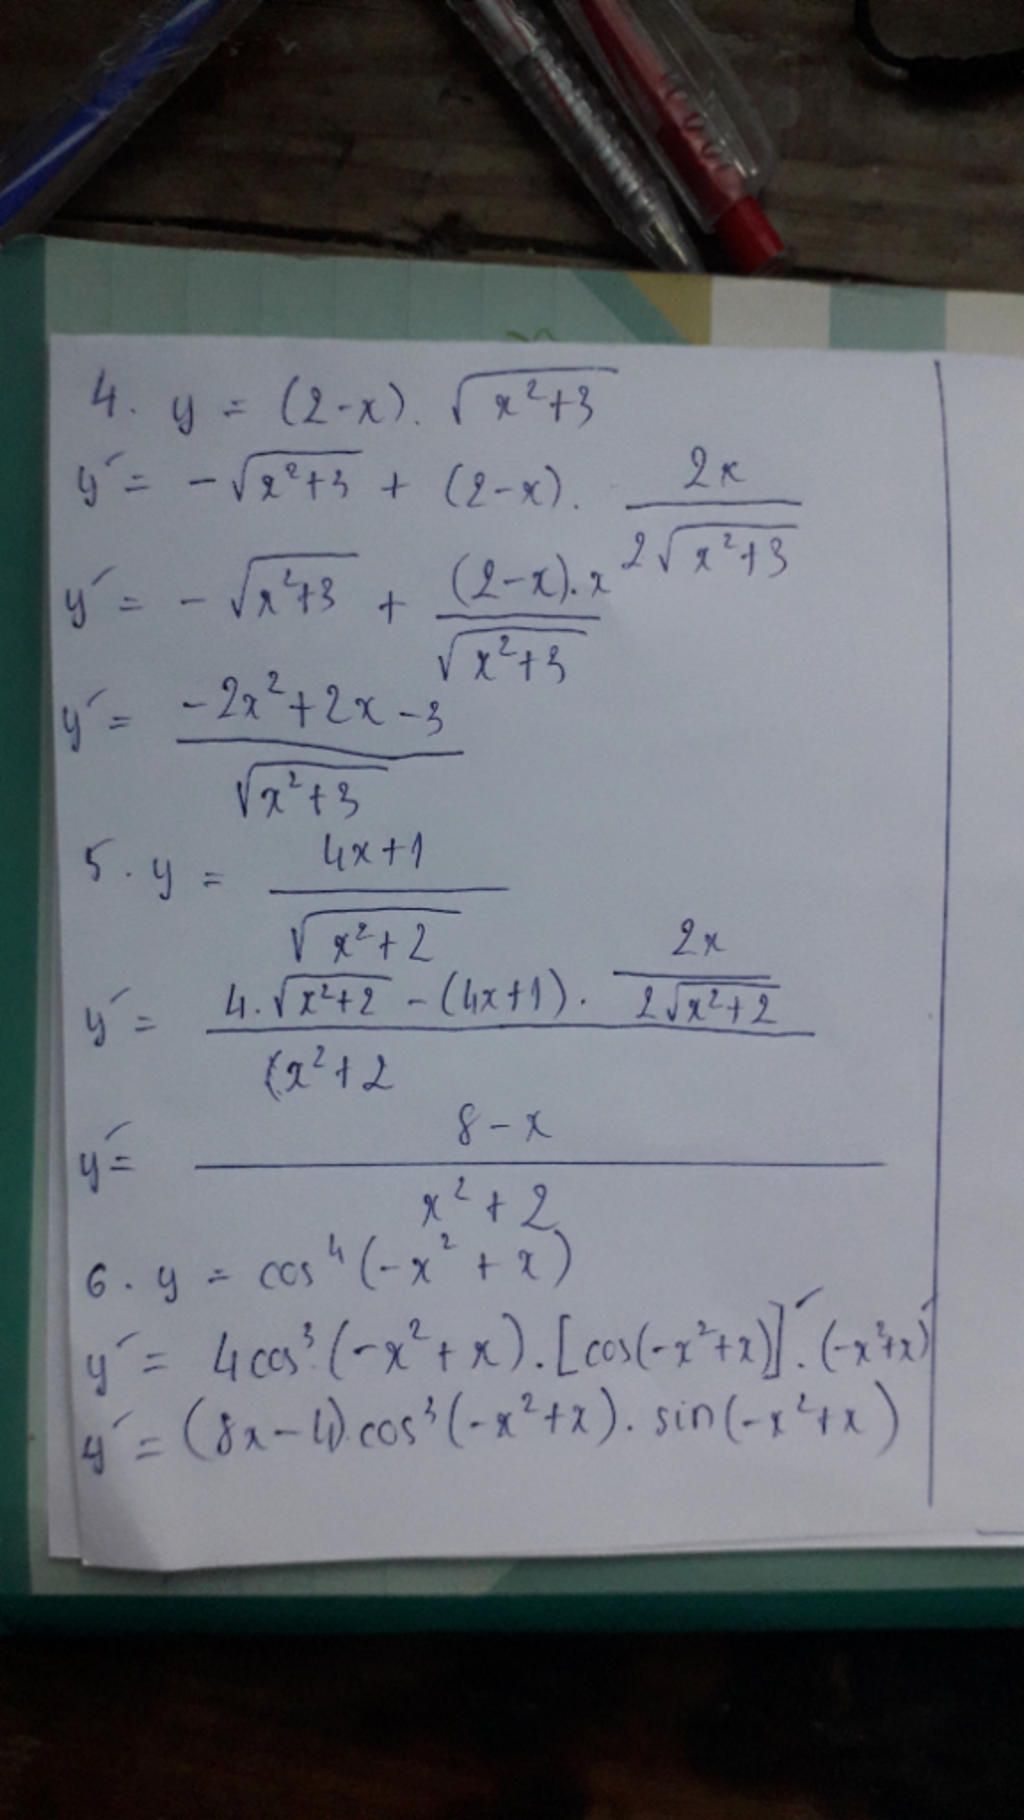 4. y = (2-x). √(x²+3)
y' = -√(x²+3) + (2-x). 2x/(2√(x²+3))
y' = -√(x²+3) + ((2-x).x)/√(x²+3)
y' = (-2x²+2x-3)/√(x²+3)
5. y = (4x+1)/√(x²+2)
y' = (4.√(x²+2) - (4x+1). 2x/(2√(x²+2)))/(x²+2
y' = (8-x)/(x²+2)
6. y = cos⁴(-x²+x)
y' = 4cos³(-x²+x).[cos(-x²+x)]'.(-x²+x)'
y' = (8x-4).cos³(-x²+x). sin(-x²+x)